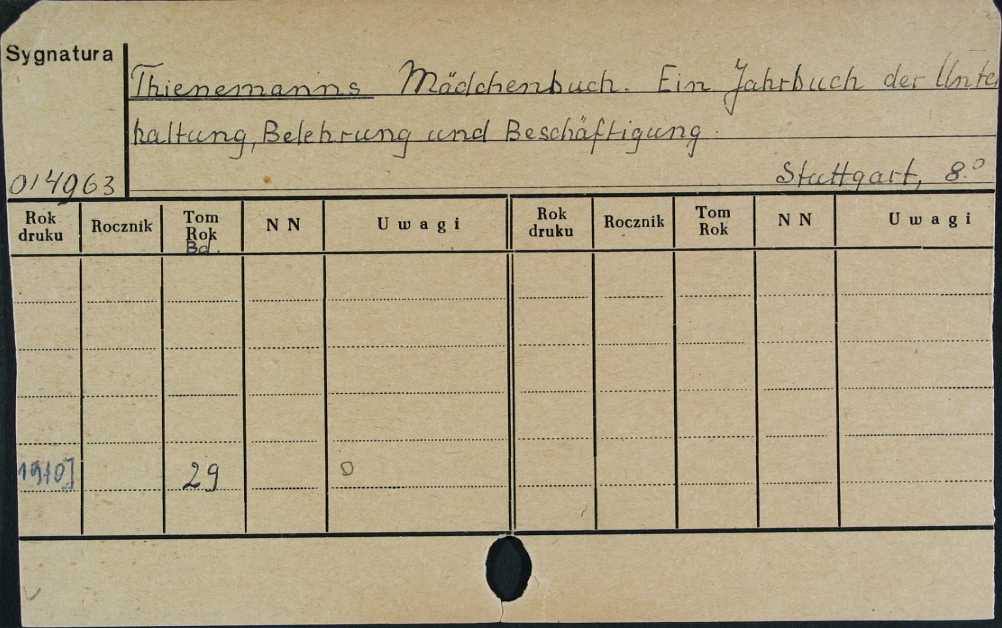 Sygnatura
Thienemanns Mädchenbuch. Ein Jahrbuch der Unte
haltung, Belehrung und Beschäftigung.
014963 Stuttgart, 8°
Rok druku Rocznik Tom Rok Bd. N N Uwagi Rok druku Rocznik Tom Rok N N Uwagi
1910] 29 0